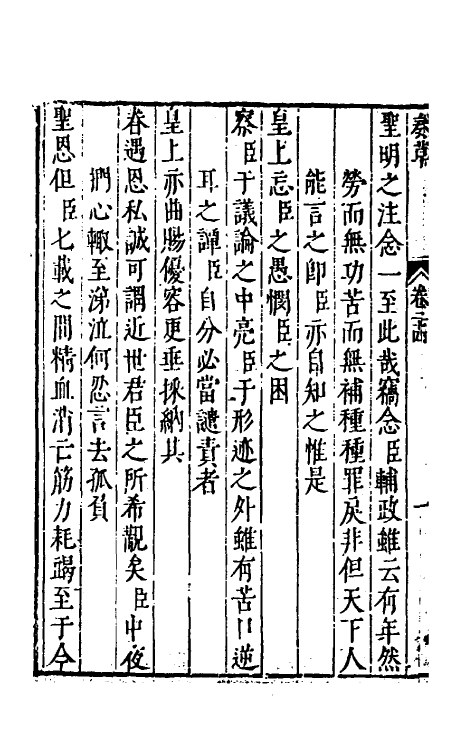 奏草
卷之
聖明之注念一至此哉竊念臣輔政雖云有年然
勞而無功苦而無補種種罪戾非但天下人
能言之即臣亦自知之惟是
皇上念臣之愚憫臣之困
察臣于議論之中亮臣于形迹之外雖有苦口逆
耳之譚臣自分必當譴責者
皇上亦曲賜優容更垂採納其
眷遇恩私誠可謂近世君臣之所希覯矣臣中夜
捫心輙至涕泣何忍言去孤負
聖恩但臣七載之間精血消亡筋力耗竭至于今